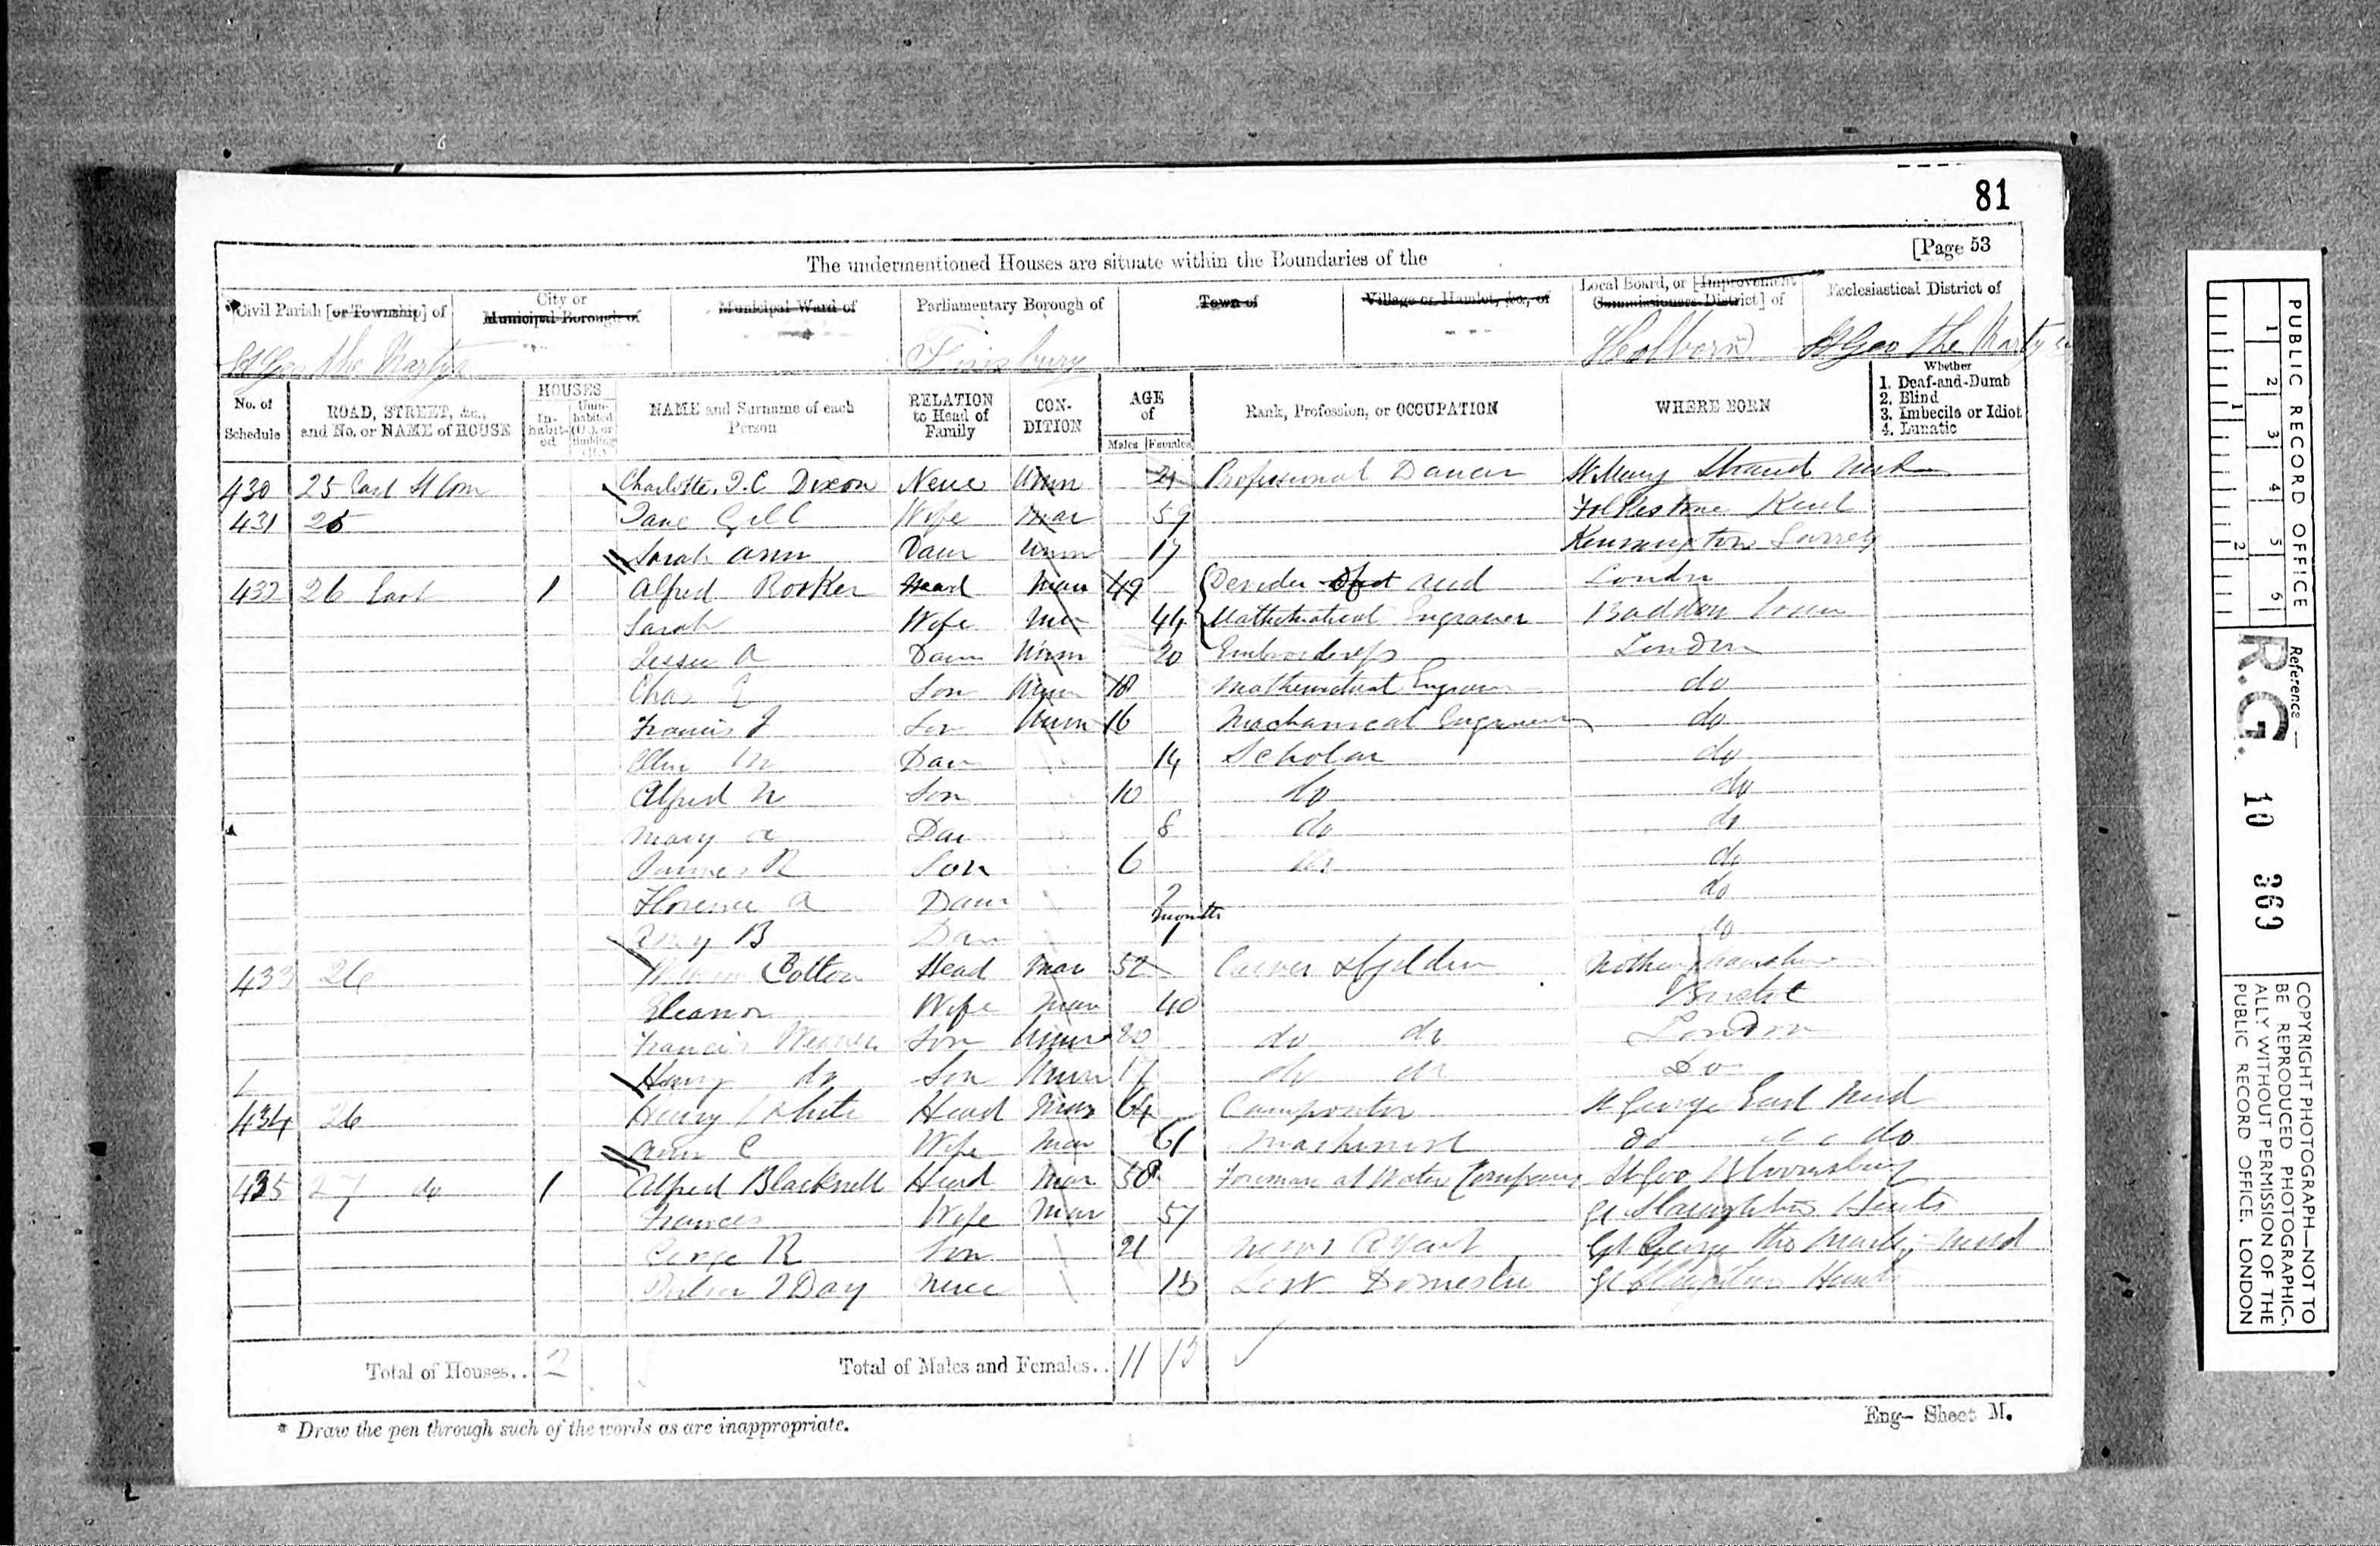 81
[Page 53
The undermentioned Houses are situate within the Boundaries of the
*Civil Parish [or Township] of
City or Municipal Borough of
Municipal Ward of
Parliamentary Borough of
Town of
Village or Hamlet, &c., of
Local Board, or [Improvement Commissioners District] of
Ecclesiastical District of
St Geo the Martyr
Finsbury
Holborn
St Geo the Martyr
No. of Schedule
ROAD, STREET, &c., and No. or NAME of HOUSE
HOUSES
In-habit-ed
Unin-habited (U.), or Building (B.)
NAME and Surname of each Person
RELATION to Head of Family
CON-DITION
AGE of
Males
Females
Rank, Profession, or OCCUPATION
WHERE BORN
Whether
1. Deaf-and-Dumb
2. Blind
3. Imbecile or Idiot
4. Lunatic
430 25 East St Charlotte Dixon Neice Unm 21 Professional Dancer St Mary Strand
431 25 Jane Gill Wife Mar 59 Folkestone Kent
Sarah Ann Daur Unm 17 Kennington Surrey
432 26 East 1 Alfred Rooker Head Mar 49 and London
Sarah Wife Mar 44 Mathematical Engraver
Jessie A Daur Unm 20 London
Chas Son Unm 18 Mathematical Engraver do
Francis J Son Unm 16 Mechanical Engraver do
Ellen M Daur 14 Scholar do
Alfred W Son 10 do do
Mary A Dau 8 do do
James R Son 6 do do
Florence A Daur 2 do
months
Amy B Dau 1 do
433 26 William Cotton Head Mar 52 Carver & Gilder
Eleanor Wife Mar 40 Bristol
Francis Son Unm 20 do do London
Henry do Son Unm 17 do do Do
434 26 Henry White Head Mar 64 Compositor St George East Mid
Ann C Wife Mar 61 Machinist do do
435 27 do 1 Alfred Blacknell Head Mar 58 Foreman at Water Company St Geo Bloomsbury
Frances Wife Mar 57 Gt Staughton Hunts
George R Son 21 News Agent St George the Mart Mid
Day Neice 15 Serv Domestic Gt Staughton Hunts
Total of Houses.. 2
Total of Males and Females.. 11 13
* Draw the pen through such of the words as are inappropriate.
Eng— Sheet M.
PUBLIC RECORD OFFICE
1 2 3 4 5 6
1 2
Reference:—
R.G. 10 369
COPYRIGHT PHOTOGRAPH—NOT TO
BE REPRODUCED PHOTOGRAPHIC-
ALLY WITHOUT PERMISSION OF THE
PUBLIC RECORD OFFICE. LONDON